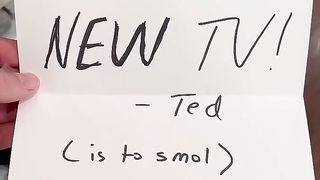 NEW TV!
- Ted
(is to smol)